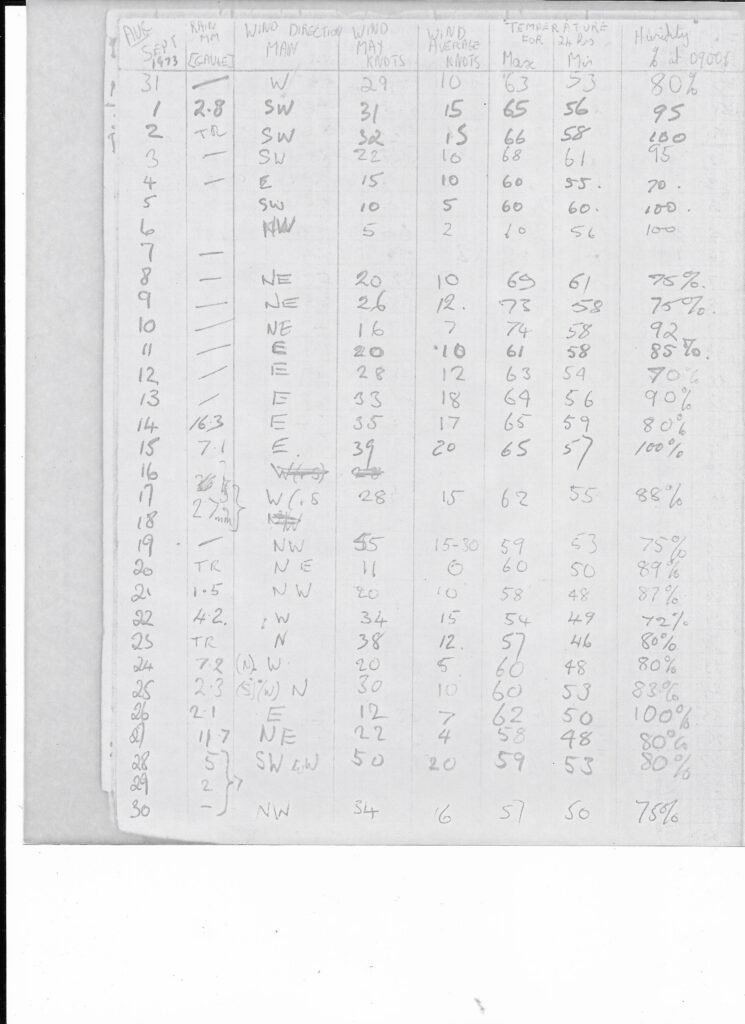 AUG SEPT 1973 RAIN MM [GAUGE] WIND DIRECTION MAIN WIND MAX KNOTS WIND AVERAGE KNOTS TEMPERATURE FOR 24 hrs Max Min Humidity % at 0900
31 — W 29 10 63 53 80%
1 2.8 SW 31 15 65 56 95
2 TR SW 32 15 66 58 100
3 — SW 22 10 68 61 95
4 — E 15 10 60 55. 70.
5 SW 10 5 60 60. 100.
6 NW 5 2 60 56 100
7 —
8 — NE 20 10 69 61 75%.
9 — NE 26 12. 73 58 75%.
10 — NE 16 7 74 58 92
11 — E 20 10 61 58 85%.
12 — E 28 12 63 54 70%
13 — E 33 18 64 56 90%
14 16.3 E 35 17 65 59 80%
15 7.1 E. 39 20 65 57 100%
16
17 27 mm W/S 28 15 62 55 88%
18
19 — NW 55 15-30 59 53 75%
20 TR NE 11 6 60 50 89%
21 1.5 NW 20 10 58 48 87%
22 4.2. W 34 15 54 49 72%
23 TR N 38 12. 57 46 80%
24 7.2 (N) W 20 5 60 48 80%
25 2.3 (S)(W) N 30 10 60 53 83%
26 2.1 E 12 7 62 50 100%
27 11.7 NE 22 4 58 48 80%
28 5 SW & W 50 20 59 53 80%
29 2 7
30 — NW 34 16 57 50 75%